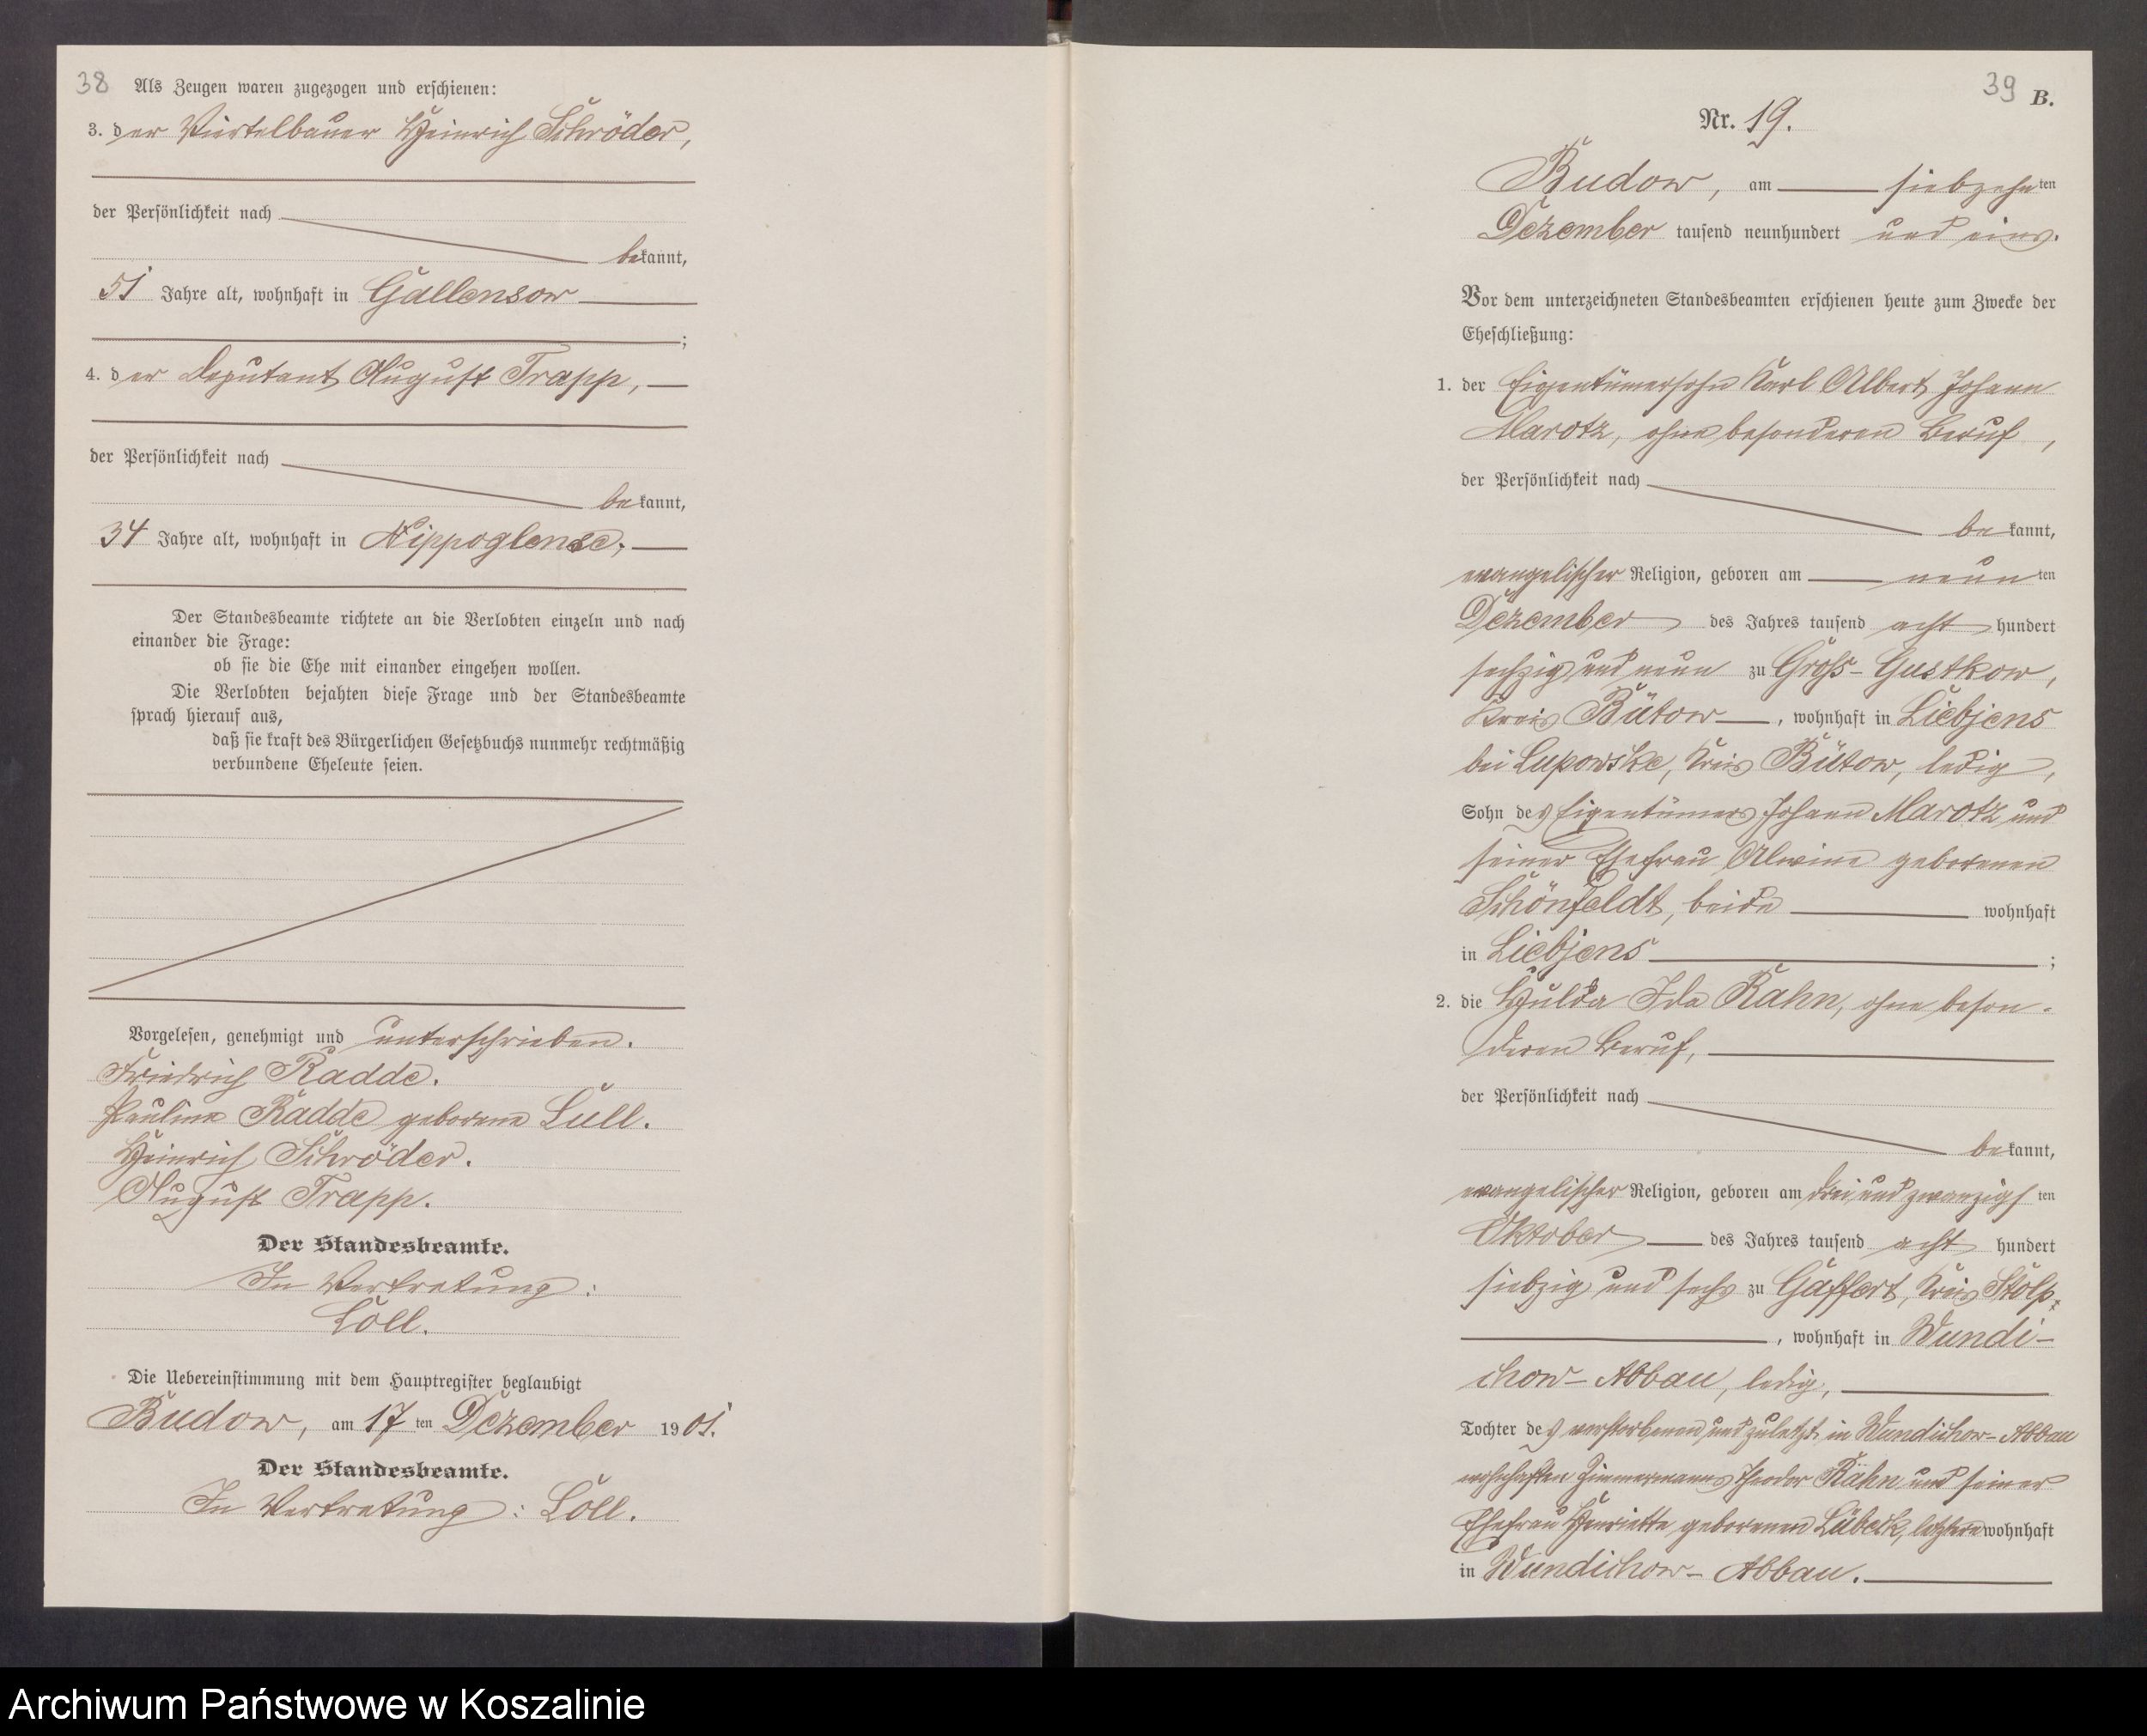 38 Als Zeugen waren zugezogen und erschienen:
3. der Viertelbauer Heinrich Schröder,
der Persönlichkeit nach
bekannt,
51 Jahre alt, wohnhaft in Gallensow
;
4. der Deputant August Trapp,
der Persönlichkeit nach
bekannt,
34 Jahre alt, wohnhaft in Nippoglense;
Der Standesbeamte richtete an die Verlobten einzeln und nach
einander die Frage:
ob sie die Ehe mit einander eingehen wollen.
Die Verlobten bejahten diese Frage und der Standesbeamte
sprach hierauf aus,
daß sie kraft des Bürgerlichen Gesetzbuchs nunmehr rechtmäßig
verbundene Eheleute seien.
Vorgelesen, genehmigt und unterschrieben.
Friedrich Radde.
Pauline Radde geborene Lüll.
Heinrich Schröder.
August Trapp.
Der Standesbeamte.
In Vertretung:
Löll.
Die Uebereinstimmung mit dem Hauptregister beglaubigt
Budow, am 17ten Dezember 1901.
Der Standesbeamte.
In Vertretung: Löll.
39 B.
Nr. 19.
Budow, am siebzehnten
Dezember tausend neunhundert und eins.
Vor dem unterzeichneten Standesbeamten erschienen heute zum Zwecke der
Eheschließung:
1. der Eigentümersohn Karl Albert Johann
Marotz, ohne besonderen Beruf,
der Persönlichkeit nach
bekannt,
evangelischer Religion, geboren am neunten
Dezember des Jahres tausend achthundert
sechzig und neun zu Groß-Gustkow,
Kreis Bütow, wohnhaft in Liebjens
bei Lupowske, Kreis Bütow, ledig,
Sohn des Eigentümers Johann Marotz und
seiner Ehefrau Alwine geborenen
Schönfeldt, beide wohnhaft
in Liebjens ;
2. die Hulda Ida Rahn, ohne beson-
deren Beruf,
der Persönlichkeit nach
bekannt,
evangelischer Religion, geboren am drei und zwanzigsten
Oktober des Jahres tausend achthundert
siebzig und sechs zu Gaffert, Kreis Stolp,
, wohnhaft in Wundi-
chow-Abbau, ledig,
Tochter des verstorbenen und zuletzt in Wundichow-Abbau
wohnhaften Zimmermanns Theodor Rahn und seiner
Ehefrau Henriette geborenen Lübeck, letztere wohnhaft
in Wundichow-Abbau.
Archiwum Państwowe w Koszalinie